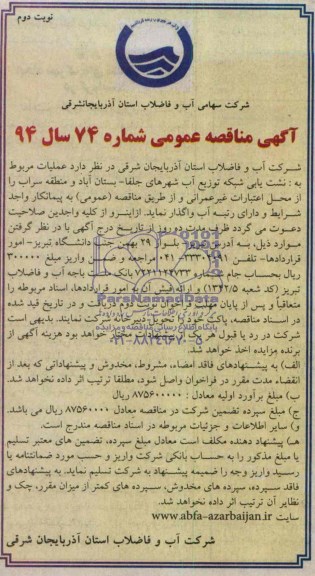 نوبت دوم
شرکت سهامی آب و فاضلاب استان آذربایجانشرقی
آگهی مناقصه عمومی شماره ۷۴ سال ۹۴
شرکت آب و فاضلاب استان آذربایجان شرقی در نظر دارد عملیات مربوط
به : نشت یابی شبکه توزیع آب شهرهای جلفا- بستان آباد و منطقه سراب را
از محل اعتبارات غیرعمرانی و از طریق مناقصه (عمومی) به پیمانکار واجد
شرایط و دارای رتبه آب واگذار نماید. ازاینرو از کلیه واجدین صلاحیت
دعوت می گردد ظرف روز از تاریخ درج آگهی با در نظر گرفتن
موارد ذیل، به آدرس بلوار ۲۹ بهمن جنب دانشگاه تبریز- امور
قراردادها- تلفن مراجعه و ضمن واریز مبلغ ۳۰۰۰۰۰
ریال بحساب جام شماره بانک ملت باجه آب و فاضلاب
تبریز (کد شعبه ۱۳۴۲/۵) و ارائه فیش آن به امور قراردادها، اسناد مربوطه را
متعاقباً و پس از پایان مهلت فراخوان نوبت دوم دریافت و در تاریخ قید شده
در اسناد مناقصه، پاکت خود را تحویل دبیرخانه شرکت نمایند. بدیهی است
شرکت در رد یا قبول هر یک از پیشنهادات مختار خواهد بود هزینه آگهی از
برنده مزایده اخذ خواهد شد.
الف) به پیشنهادهای فاقد امضاء، مشروط، مخدوش و پیشنهاداتی که بعد از
انقضاء مدت مقرر در فراخوان واصل شود، مطلقا ترتیب اثر داده نخواهد شد.
ب) مبلغ برآورد اولیه معادل : ۸۷۵۶۰۰۰۰۰ ریال
ج) مبلغ سپرده تضمین شرکت در مناقصه معادل ۸۷۵۶۰۰۰۰ ریال می باشد.
و) سایر اطلاعات و جزئیات مربوطه در اسناد مناقصه مندرج است.
هـ) پیشنهاد دهنده مکلف است معادل مبلغ سپرده، تضمین های معتبر تسلیم
یا مبلغ مذکور را به حساب بانکی شرکت واریز و حسب مورد ضمانتنامه یا
رسید واریز وجه را ضمیمه پیشنهاد به شرکت تسلیم نماید. به پیشنهادهای
فاقد سپرده، سپرده های مخدوش، سپرده های کمتر از میزان مقرر، چک و
نظایر آن ترتیب اثر داده نخواهد شد.
سایت www.abfa-azarbaijan.ir
شرکت آب و فاضلاب استان آذربایجان شرقی
ParsNamadData
پایگاه اطلاع رسانی مناقصه و مزایده
۰۲۱-۸۸۳۴۹۶۷۰-۵